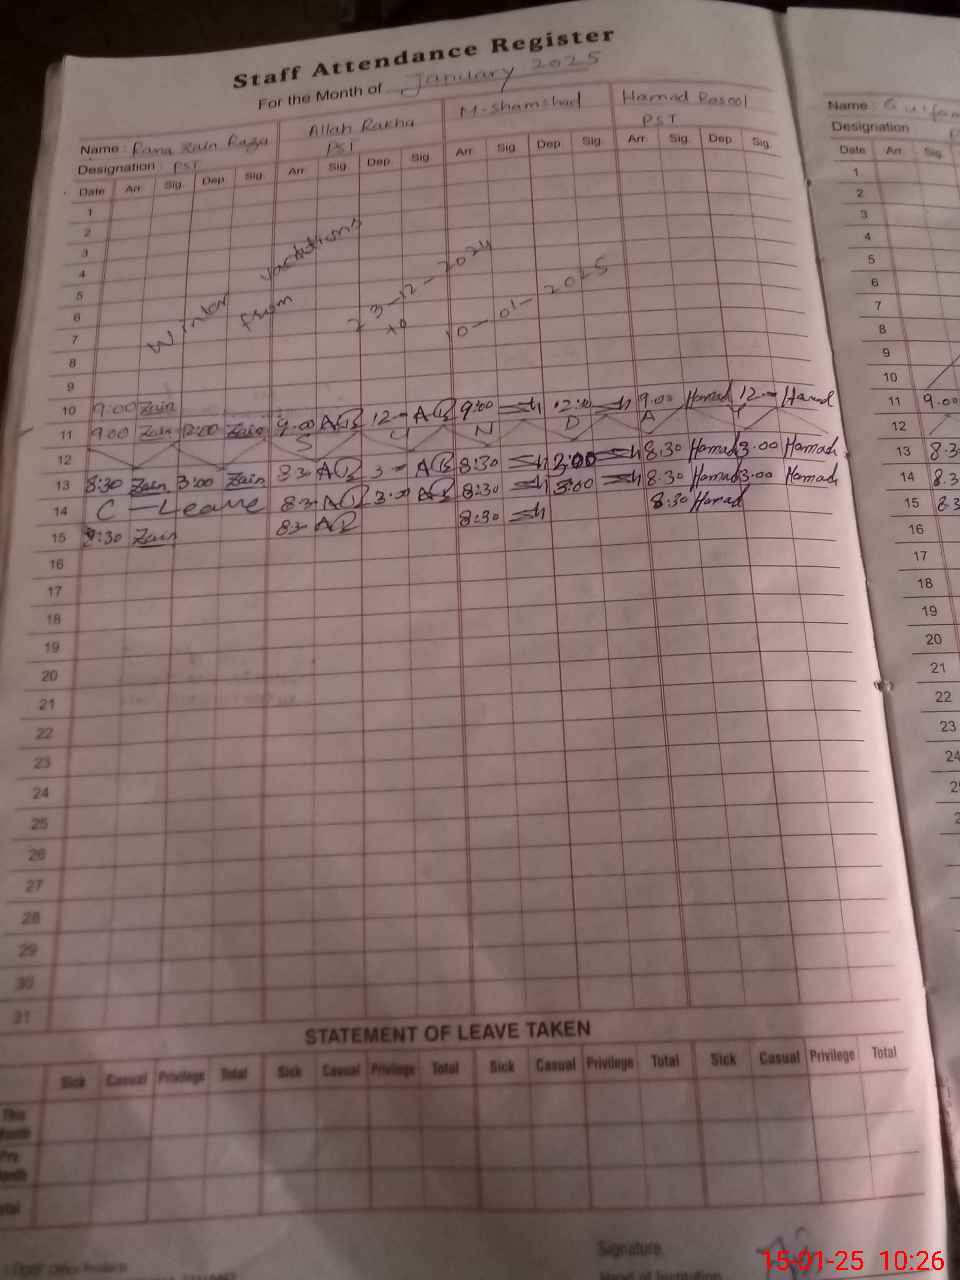 Staff Attendance Register
For the Month of January 2025
Name : Rana Zain Raza Allah Rakha M-Shamshad Hamad Rasool
Designation : PST PST PST
Date Arr. Sig. Dep. Sig. Arr. Sig. Dep. Sig. Arr. Sig. Dep. Sig. Arr. Sig. Dep. Sig.
1
2
3
4
5
6
7
8
9
Winter vacations
from 23-12-2024
to 10-01-2025
10 9:00 Zain
11 9:00 Zain 12:00 Zain 9.00 AR 12- AR 9:00 12:00 9.00 Hamad 12- Hamad
12 S U N D A Y
13 8:30 Zain 3:00 Zain 8:30 AR 3- AR 8:30 3:00 8.30 Hamad 3.00 Hamad
14 C - Leave 8:30 AR 3:00 AR 8:30 3:00 8.30 Hamad 3:00 Hamad
15 8:30 Zain 8:30 AR 8:30 8:30 Hamad
16
17
18
19
20
21
22
23
24
25
26
27
28
29
30
31
STATEMENT OF LEAVE TAKEN
Sick Casual Privilege Total Sick Casual Privilege Total Sick Casual Privilege Total Sick Casual Privilege Total
This
Signature
Head of Institution
Name :
Designation
Date Arr. Sig.
1
2
3
4
5
6
7
8
9
10
11 9.00
12
13 8.3
14 8.3
15 8.3
16
17
18
19
20
21
22
23
24
15-01-25 10:26